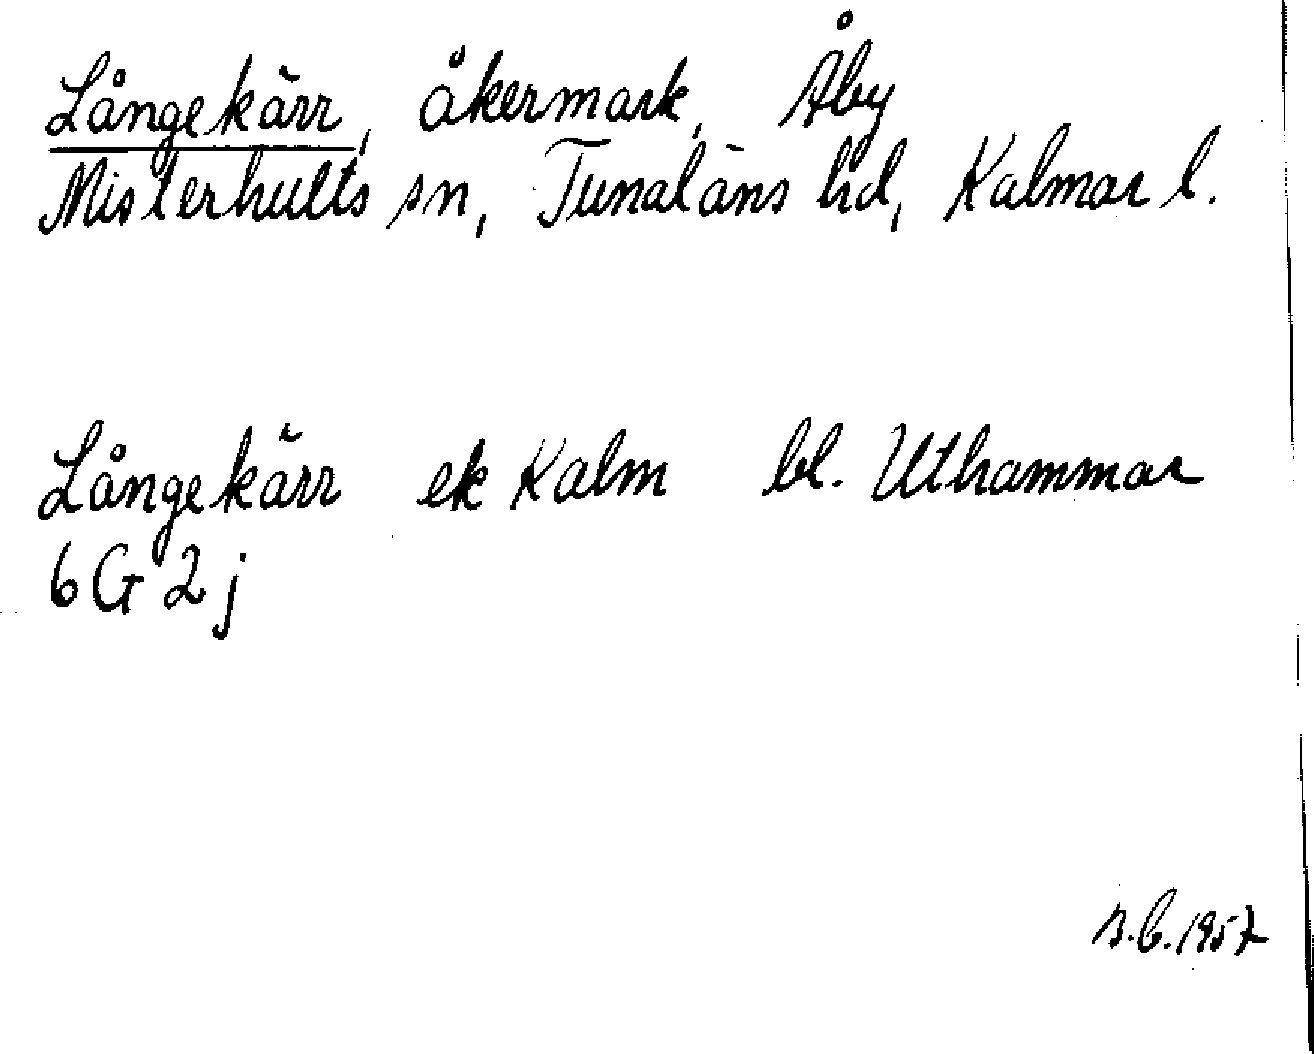 Långekärr, åkermark, Åby
Misterhults sn, Tunaläns hd, Kalmar l.
Långekärr ek Kalm bl. Uthammar
6G2j
s.b.1957